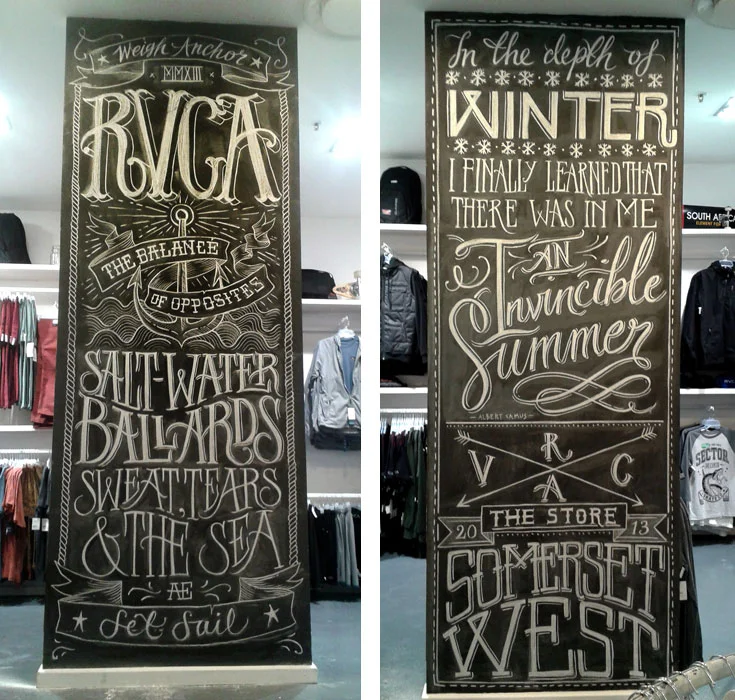 Weigh Anchor
MMXIII
RVCA
THE BALANCE
OF OPPOSITES
SALT-WATER
BALLARDS
SWEAT, TEARS
& THE SEA
AE
Set Sail
In the depth of
WINTER
I FINALLY LEARNED THAT
THERE WAS IN ME
AN
Invincible
Summer
— ALBERT CAMUS —
R
V C
A
THE STORE
20 13
SOMERSET
WEST
SOUTH AFRICA
SECTOR